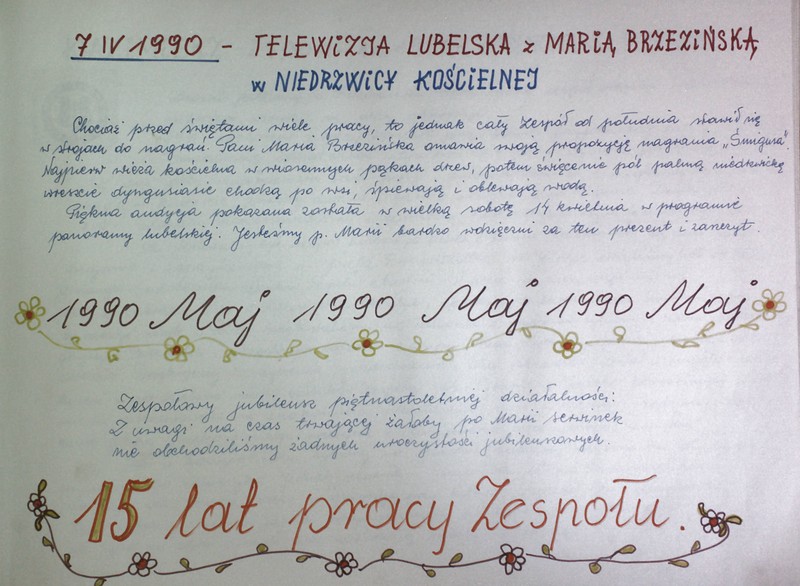 7 IV 1990 - TELEWIZJA LUBELSKA z MARIĄ BRZEZIŃSKĄ
w NIEDRZWICY KOŚCIELNEJ
Chociaż przed świętami wiele pracy, to jednak cały Zespół od południa stawił się
w strojach do nagrań. Pani Maria Brzezińska omawia swoją propozycję nagrania „Śmigusa".
Najpierw wieża kościelna w wiosennych pąkach drzew, potem święcenie pól palmą niedzwicką
wreszcie dyngusiarze chodzą po wsi, śpiewają i oblewają wodą.
Piękna audycja pokazana została w wielką sobotę 14 kwietnia w programie
panoramy lubelskiej. Jesteśmy p. Marii bardzo wdzięczni za ten prezent i zaszczyt.
1990 Maj 1990 Maj 1990 Maj
Zespołowy jubileusz piętnastoletniej działalności:
Z uwagi na czas trwającej żałoby po Marii
nie obchodziliśmy żadnych uroczystości jubileuszowych.
15 lat pracy Zespołu.